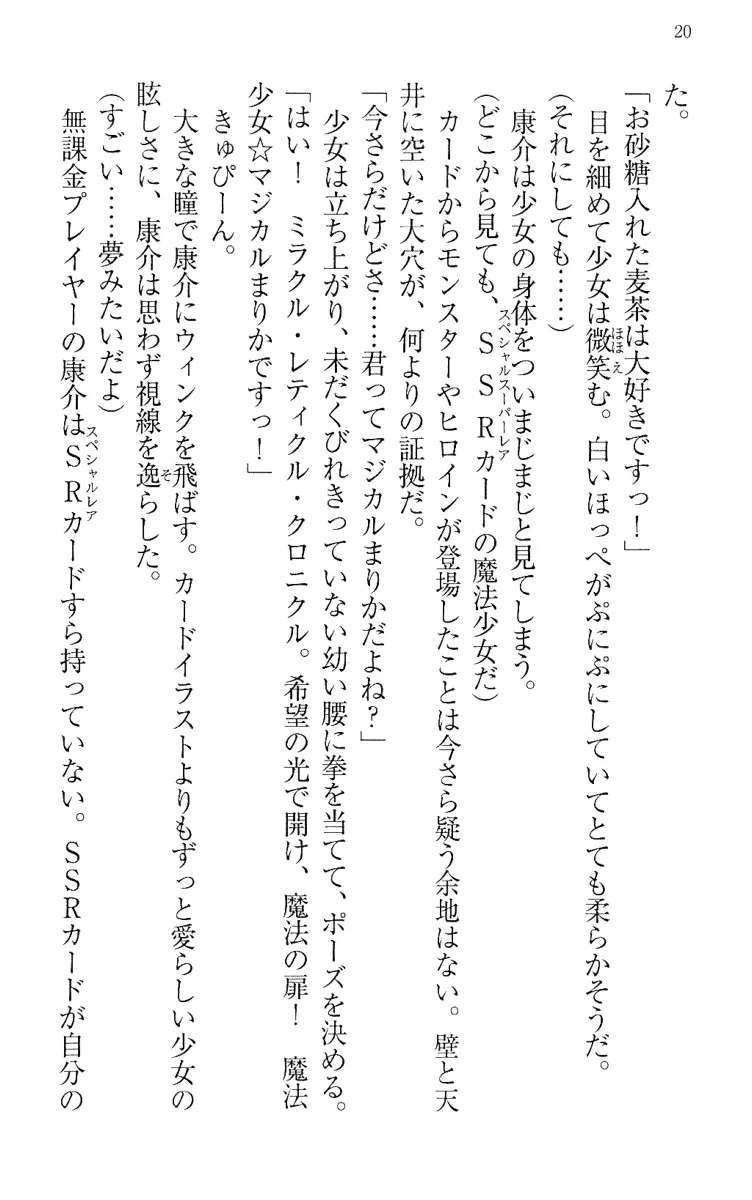 20
た。
「お砂糖入れた麦茶は大好きですっ！」
　目を細めて少女は微笑む。白いほっぺがぷにぷにしていてとても柔らかそうだ。
（それにしても……）
　康介は少女の身体をついまじまじと見てしまう。
（どこから見ても、ＳＳＲカードの魔法少女だ）
　カードからモンスターやヒロインが登場したことは今さら疑う余地はない。壁と天
井に空いた大穴が、何よりの証拠だ。
「今さらだけどさ……君ってマジカルまりかだよね？」
　少女は立ち上がり、未だくびれきっていない幼い腰に拳を当てて、ポーズを決める。
「はい！　ミラクル・レティクル・クロニクル。希望の光で開け、魔法の扉！　魔法
少女☆マジカルまりかですっ！」
　きゅぴーん。
　大きな瞳で康介にウィンクを飛ばす。カードイラストよりもずっと愛らしい少女の
眩しさに、康介は思わず視線を逸らした。
（すごい……夢みたいだよ）
　無課金プレイヤーの康介はＳＲカードすら持っていない。ＳＳＲカードが自分の
ほほえ
スペシャルスーパーレア
そ
スペシャルレア